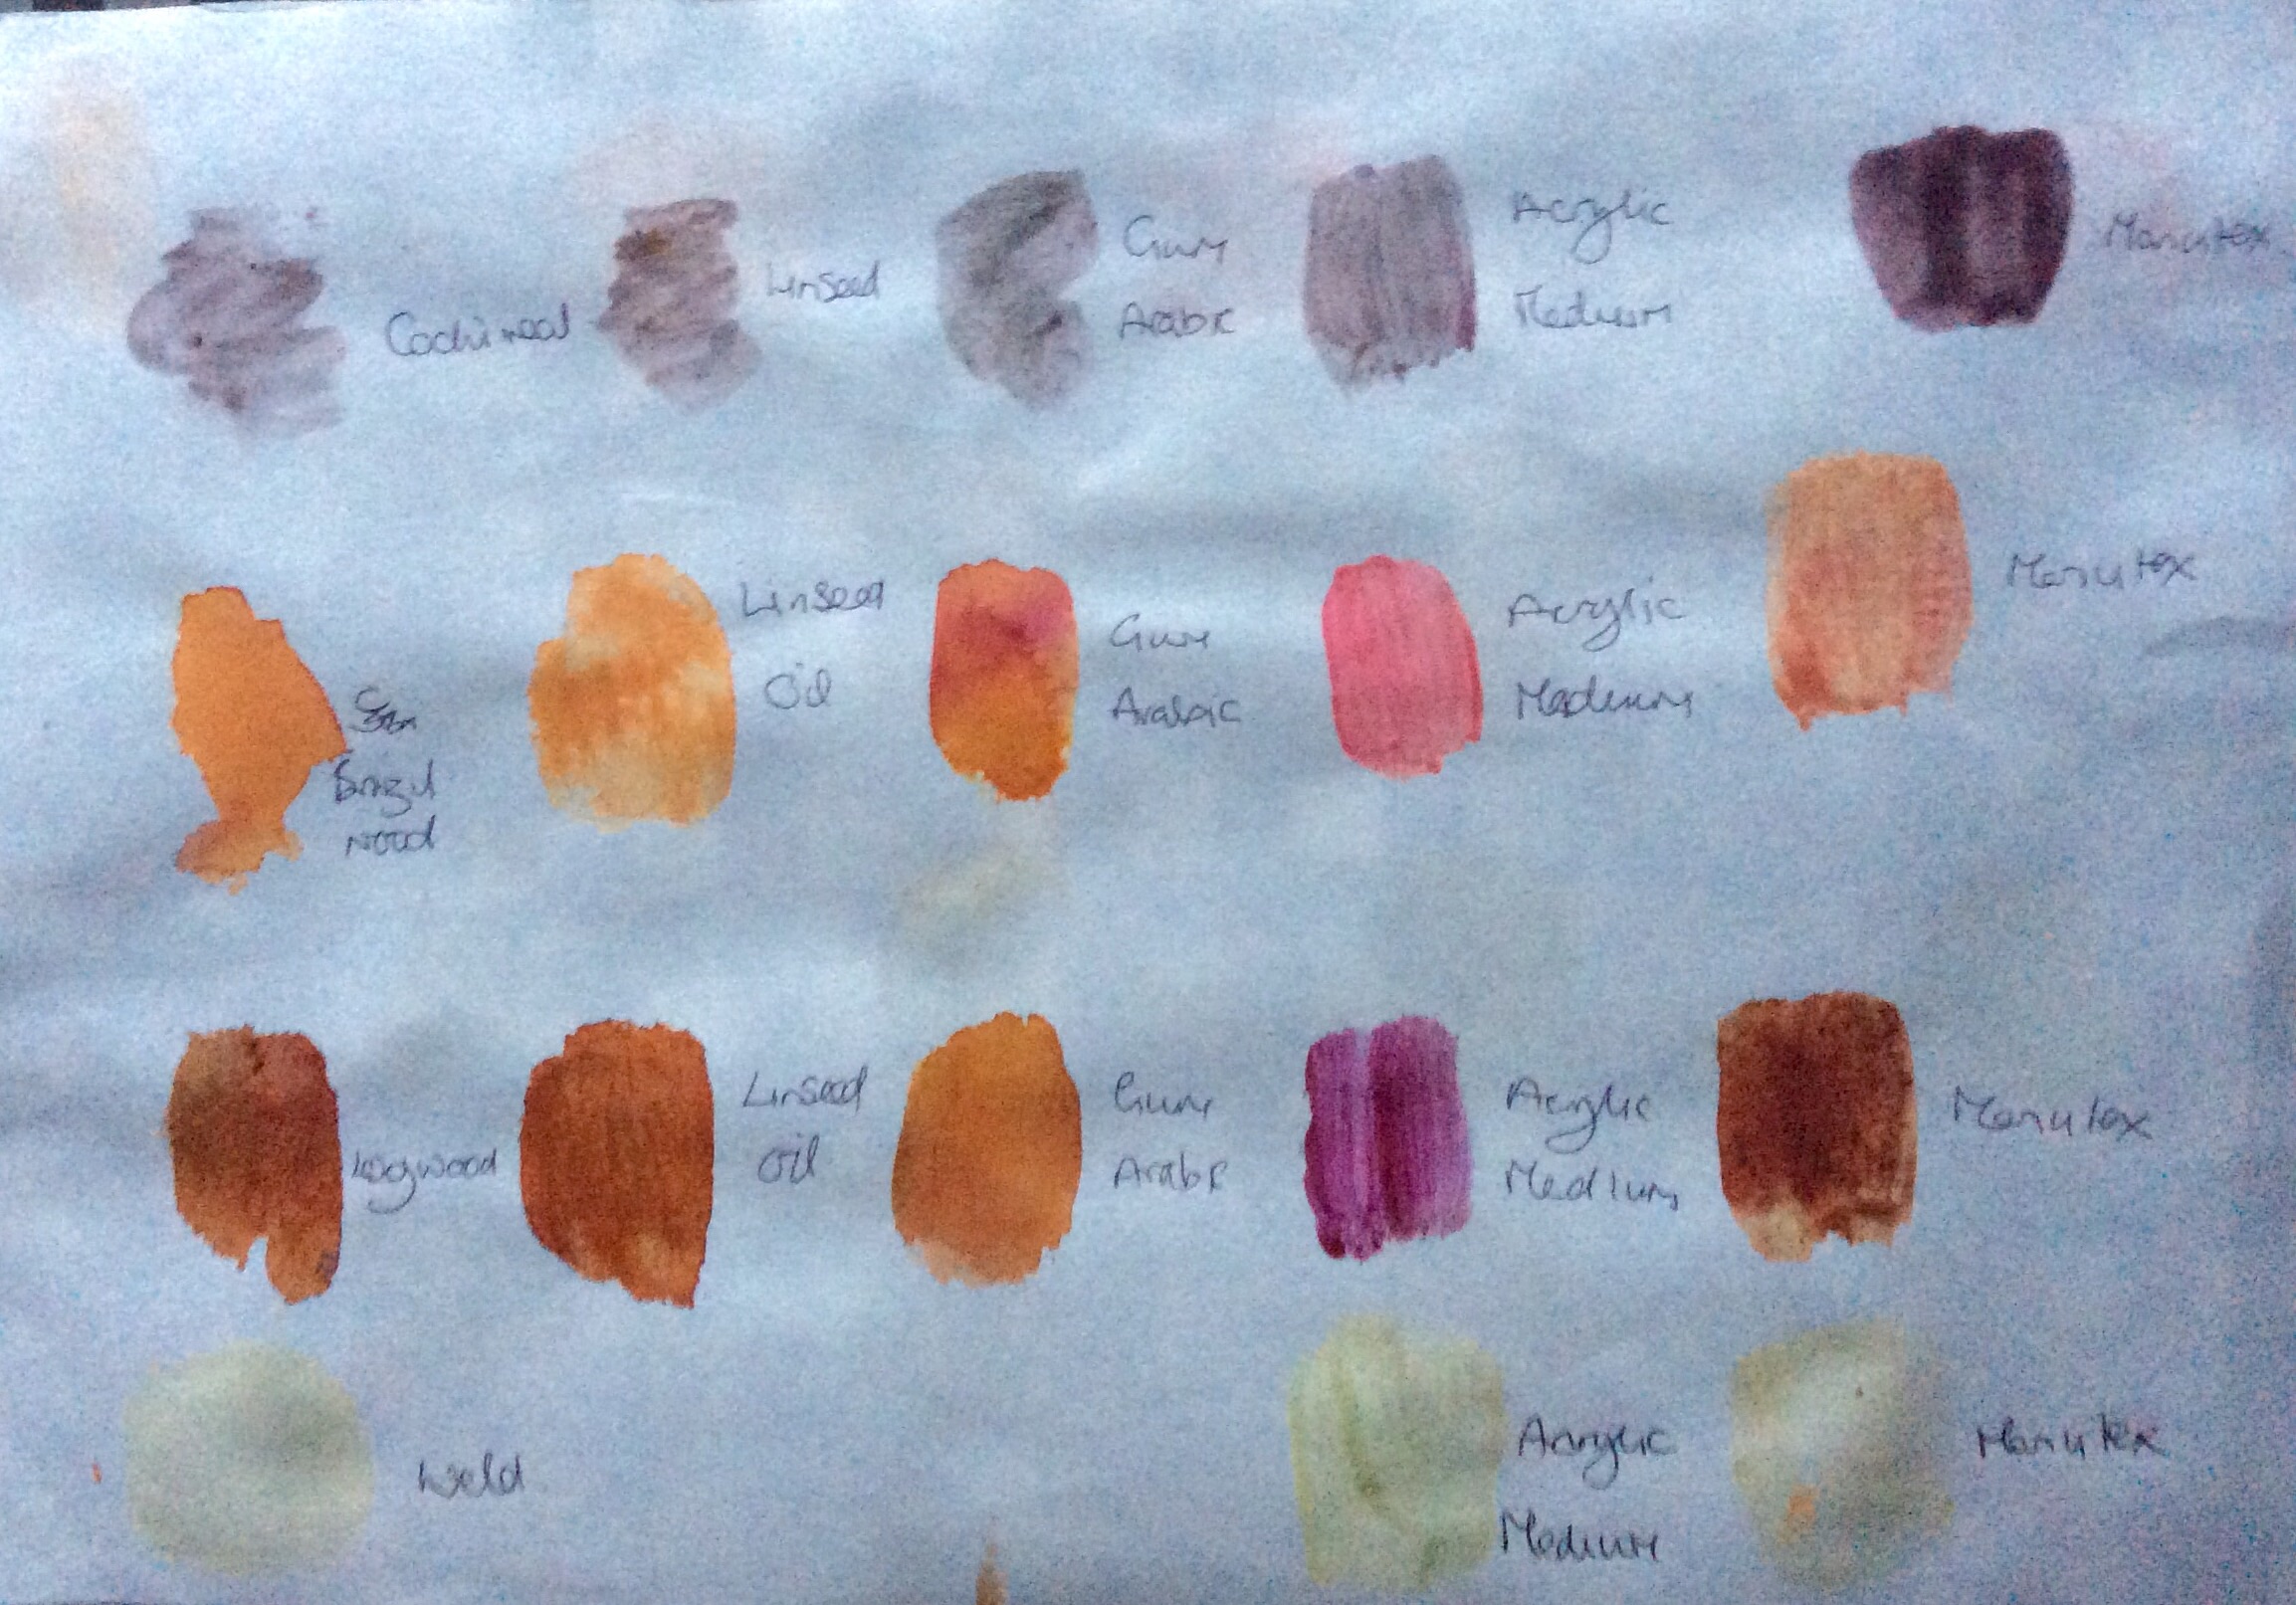 Cochineal
Linseed
Gum
Arabic
Acrylic
Medium
Manutex
Brazil
wood
Linseed
Oil
Gum
Arabic
Acrylic
Medium
Manutex
Logwood
Linseed
Oil
Gum
Arabic
Acrylic
Medium
Manutex
Weld
Acrylic
Medium
Manutex